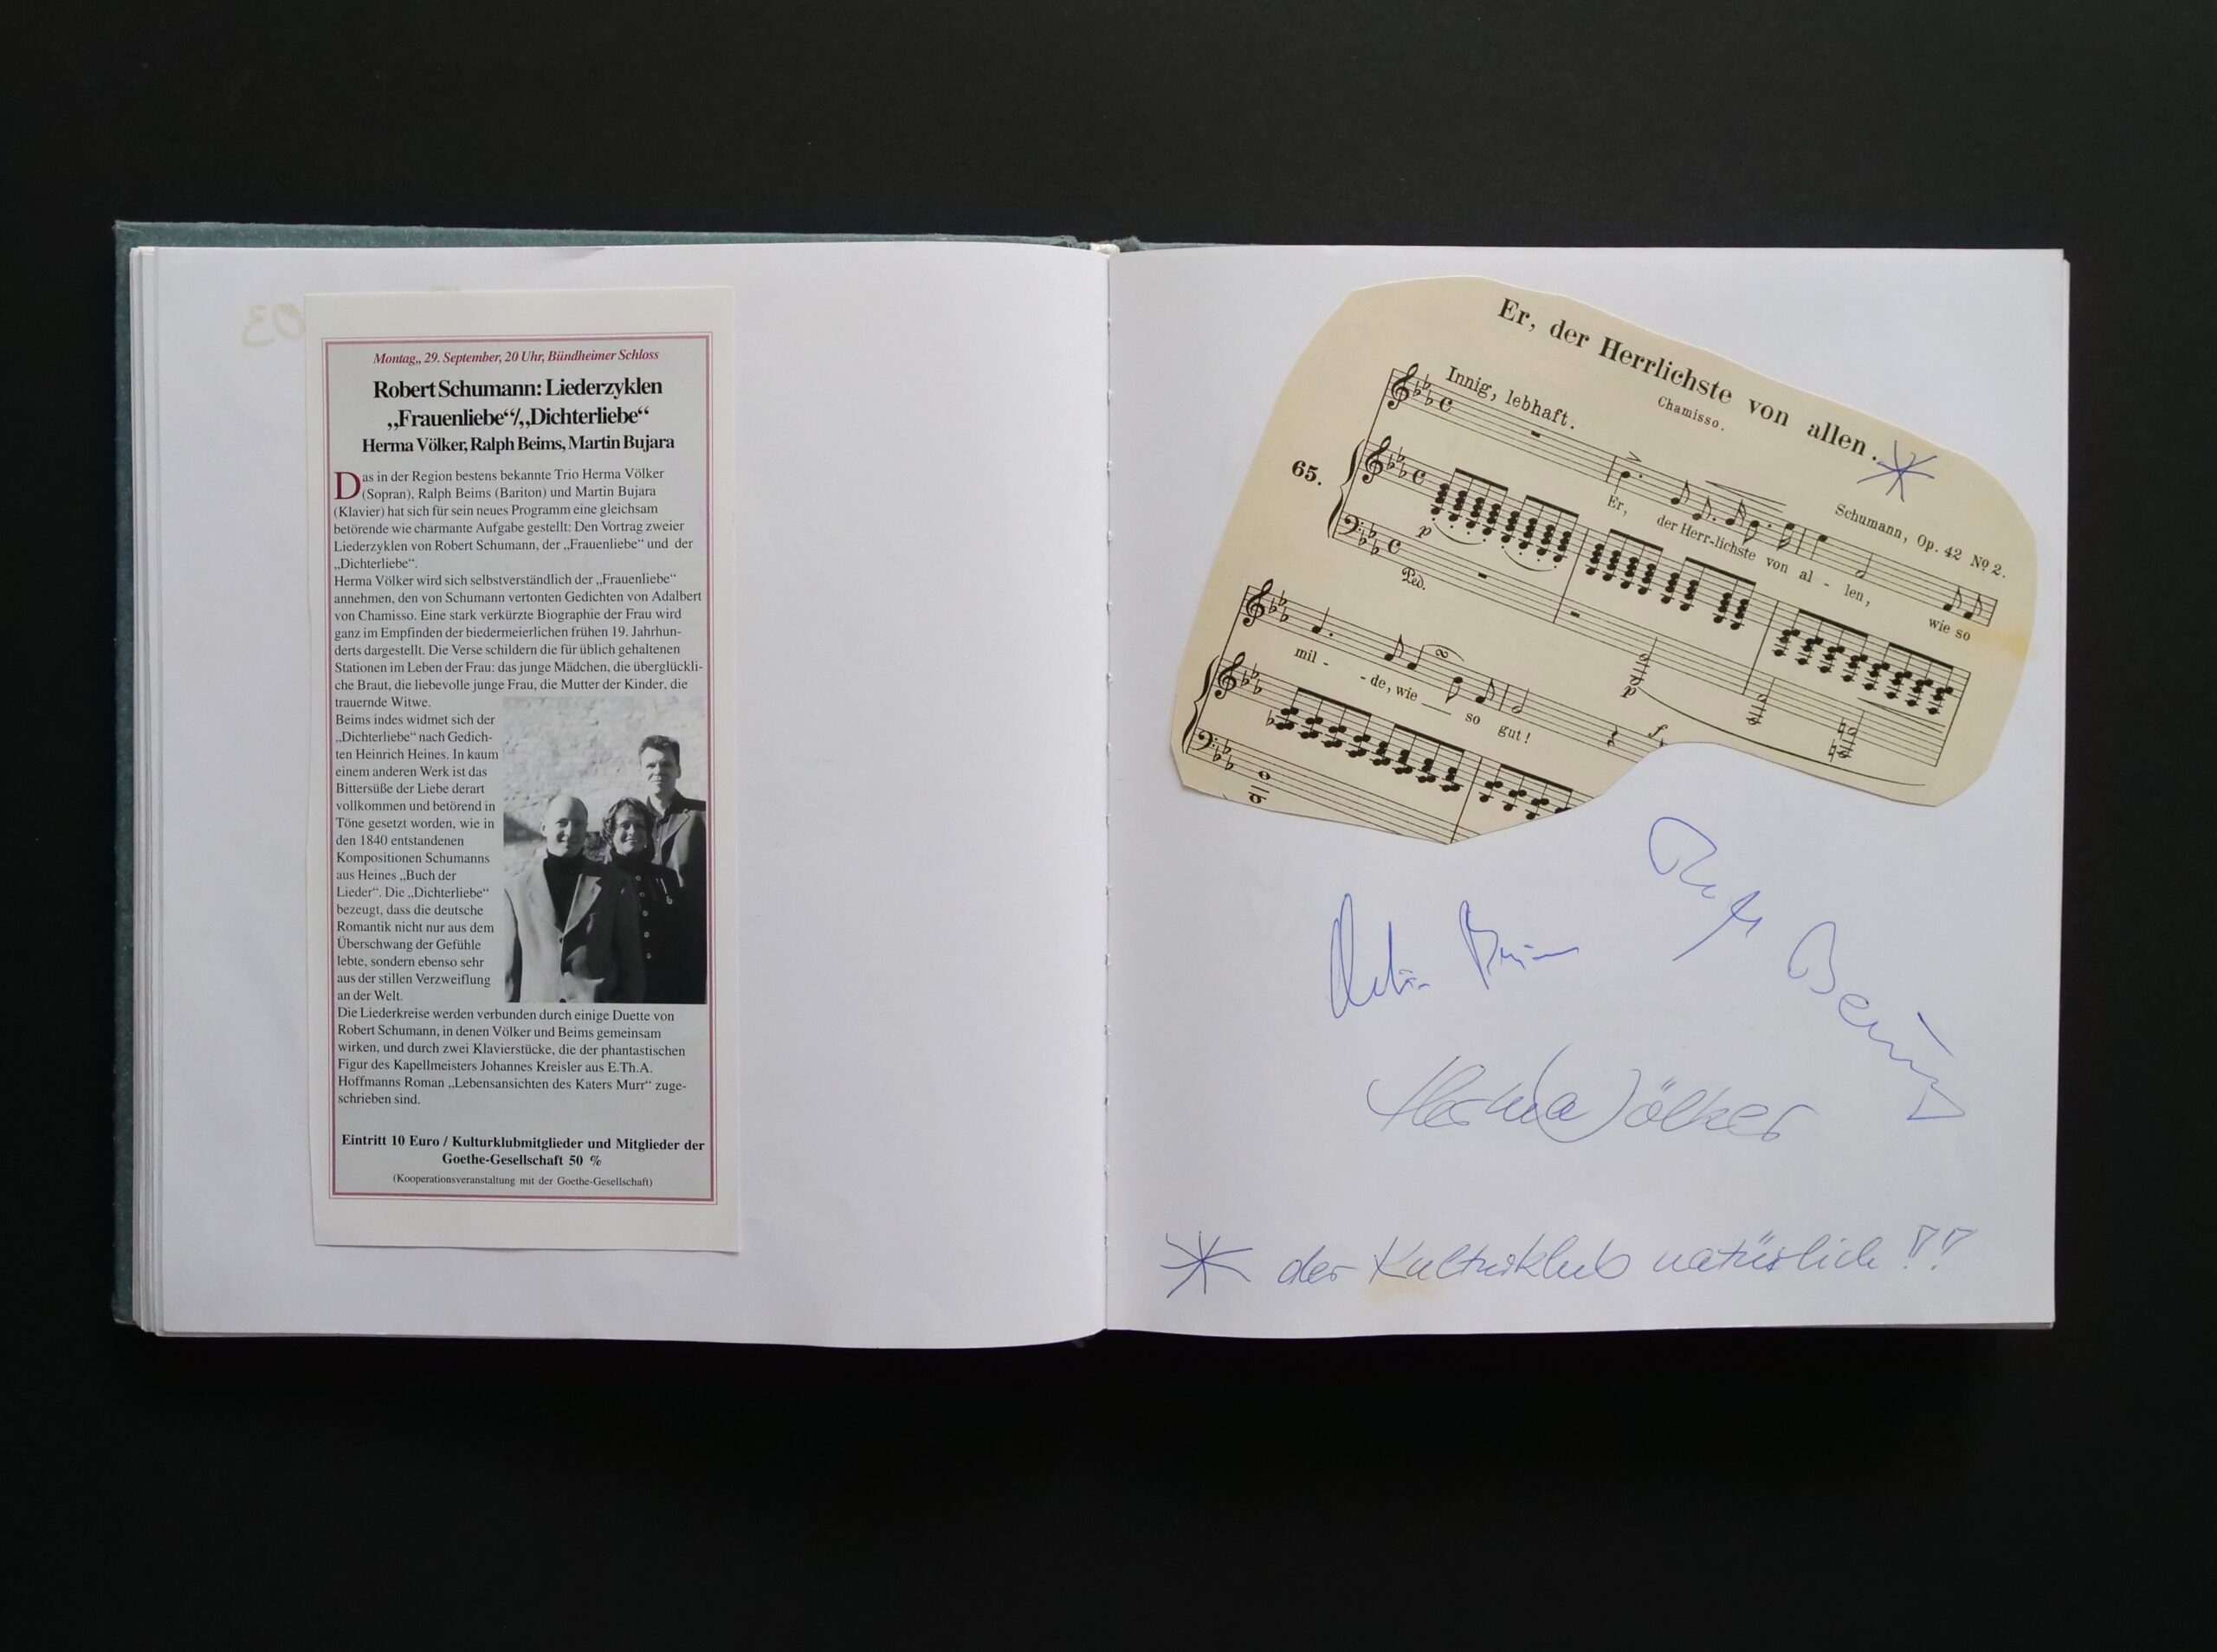 Montag,, 29. September, 20 Uhr, Bündheimer Schloss
Robert Schumann: Liederzyklen
„Frauenliebe“/„Dichterliebe“
Herma Völker, Ralph Beims, Martin Bujara
Das in der Region bestens bekannte Trio Herma Völker
(Sopran), Ralph Beims (Bariton) und Martin Bujara
(Klavier) hat sich für sein neues Programm eine gleichsam
betörende wie charmante Aufgabe gestellt: Den Vortrag zweier
Liederzyklen von Robert Schumann, der „Frauenliebe“ und der
„Dichterliebe“.
Herma Völker wird sich selbstverständlich der „Frauenliebe“
annehmen, den von Schumann vertonten Gedichten von Adalbert
von Chamisso. Eine stark verkürzte Biographie der Frau wird
ganz im Empfinden der biedermeierlichen frühen 19. Jahrhun-
derts dargestellt. Die Verse schildern die für üblich gehaltenen
Stationen im Leben der Frau: das junge Mädchen, die überglückli-
che Braut, die liebevolle junge Frau, die Mutter der Kinder, die
trauernde Witwe.
Beims indes widmet sich der
„Dichterliebe“ nach Gedich-
ten Heinrich Heines. In kaum
einem anderen Werk ist das
Bittersüße der Liebe derart
vollkommen und betörend in
Töne gesetzt worden, wie in
den 1840 entstandenen
Kompositionen Schumanns
aus Heines „Buch der
Lieder“. Die „Dichterliebe“
bezeugt, dass die deutsche
Romantik nicht nur aus dem
Überschwang der Gefühle
lebte, sondern ebenso sehr
aus der stillen Verzweiflung
an der Welt.
Die Liederkreise werden verbunden durch einige Duette von
Robert Schumann, in denen Völker und Beims gemeinsam
wirken, und durch zwei Klavierstücke, die der phantastischen
Figur des Kapellmeisters Johannes Kreisler aus E.Th.A.
Hoffmanns Roman „Lebensansichten des Katers Murr“ zuge-
schrieben sind.
Eintritt 10 Euro / Kulturklubmitglieder und Mitglieder der
Goethe-Gesellschaft 50 %
(Kooperationsveranstaltung mit der Goethe-Gesellschaft)
Er, der Herrlichste von allen.
Chamisso.
Schumann, Op. 42 № 2.
Innig, lebhaft.
65.
Er, der Herr-lichste von al - len, wie so
p
Ped.
p
mil - - de, wie so gut!
f
Martin Bujara
Ralph Beims
Herma Völker
* der Kulturklub natürlich!!